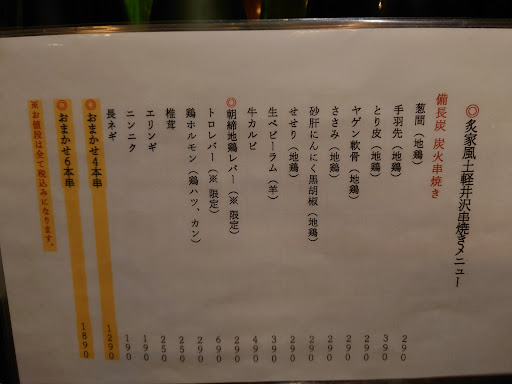 ◎炙家風土軽井沢串焼きメニュー
備長炭 炭火串焼き
葱間(地鶏) 290
手羽先(地鶏) 390
とり皮(地鶏) 290
ヤゲン軟骨(地鶏) 290
ささみ(地鶏) 290
砂肝にんにく黒胡椒(地鶏) 290
せせり(地鶏) 290
生ベビーラム(羊) 390
牛カルビ 490
◎朝締地鶏レバー(※限定) 290
トロレバー(※限定) 690
鶏ホルモン(鶏ハツ、カン) 290
椎茸 250
エリンギ 250
ニンニク 190
長ネギ 190
◎おまかせ4本串 1290
◎おまかせ6本串 1890
※お値段は全て税込みになります。